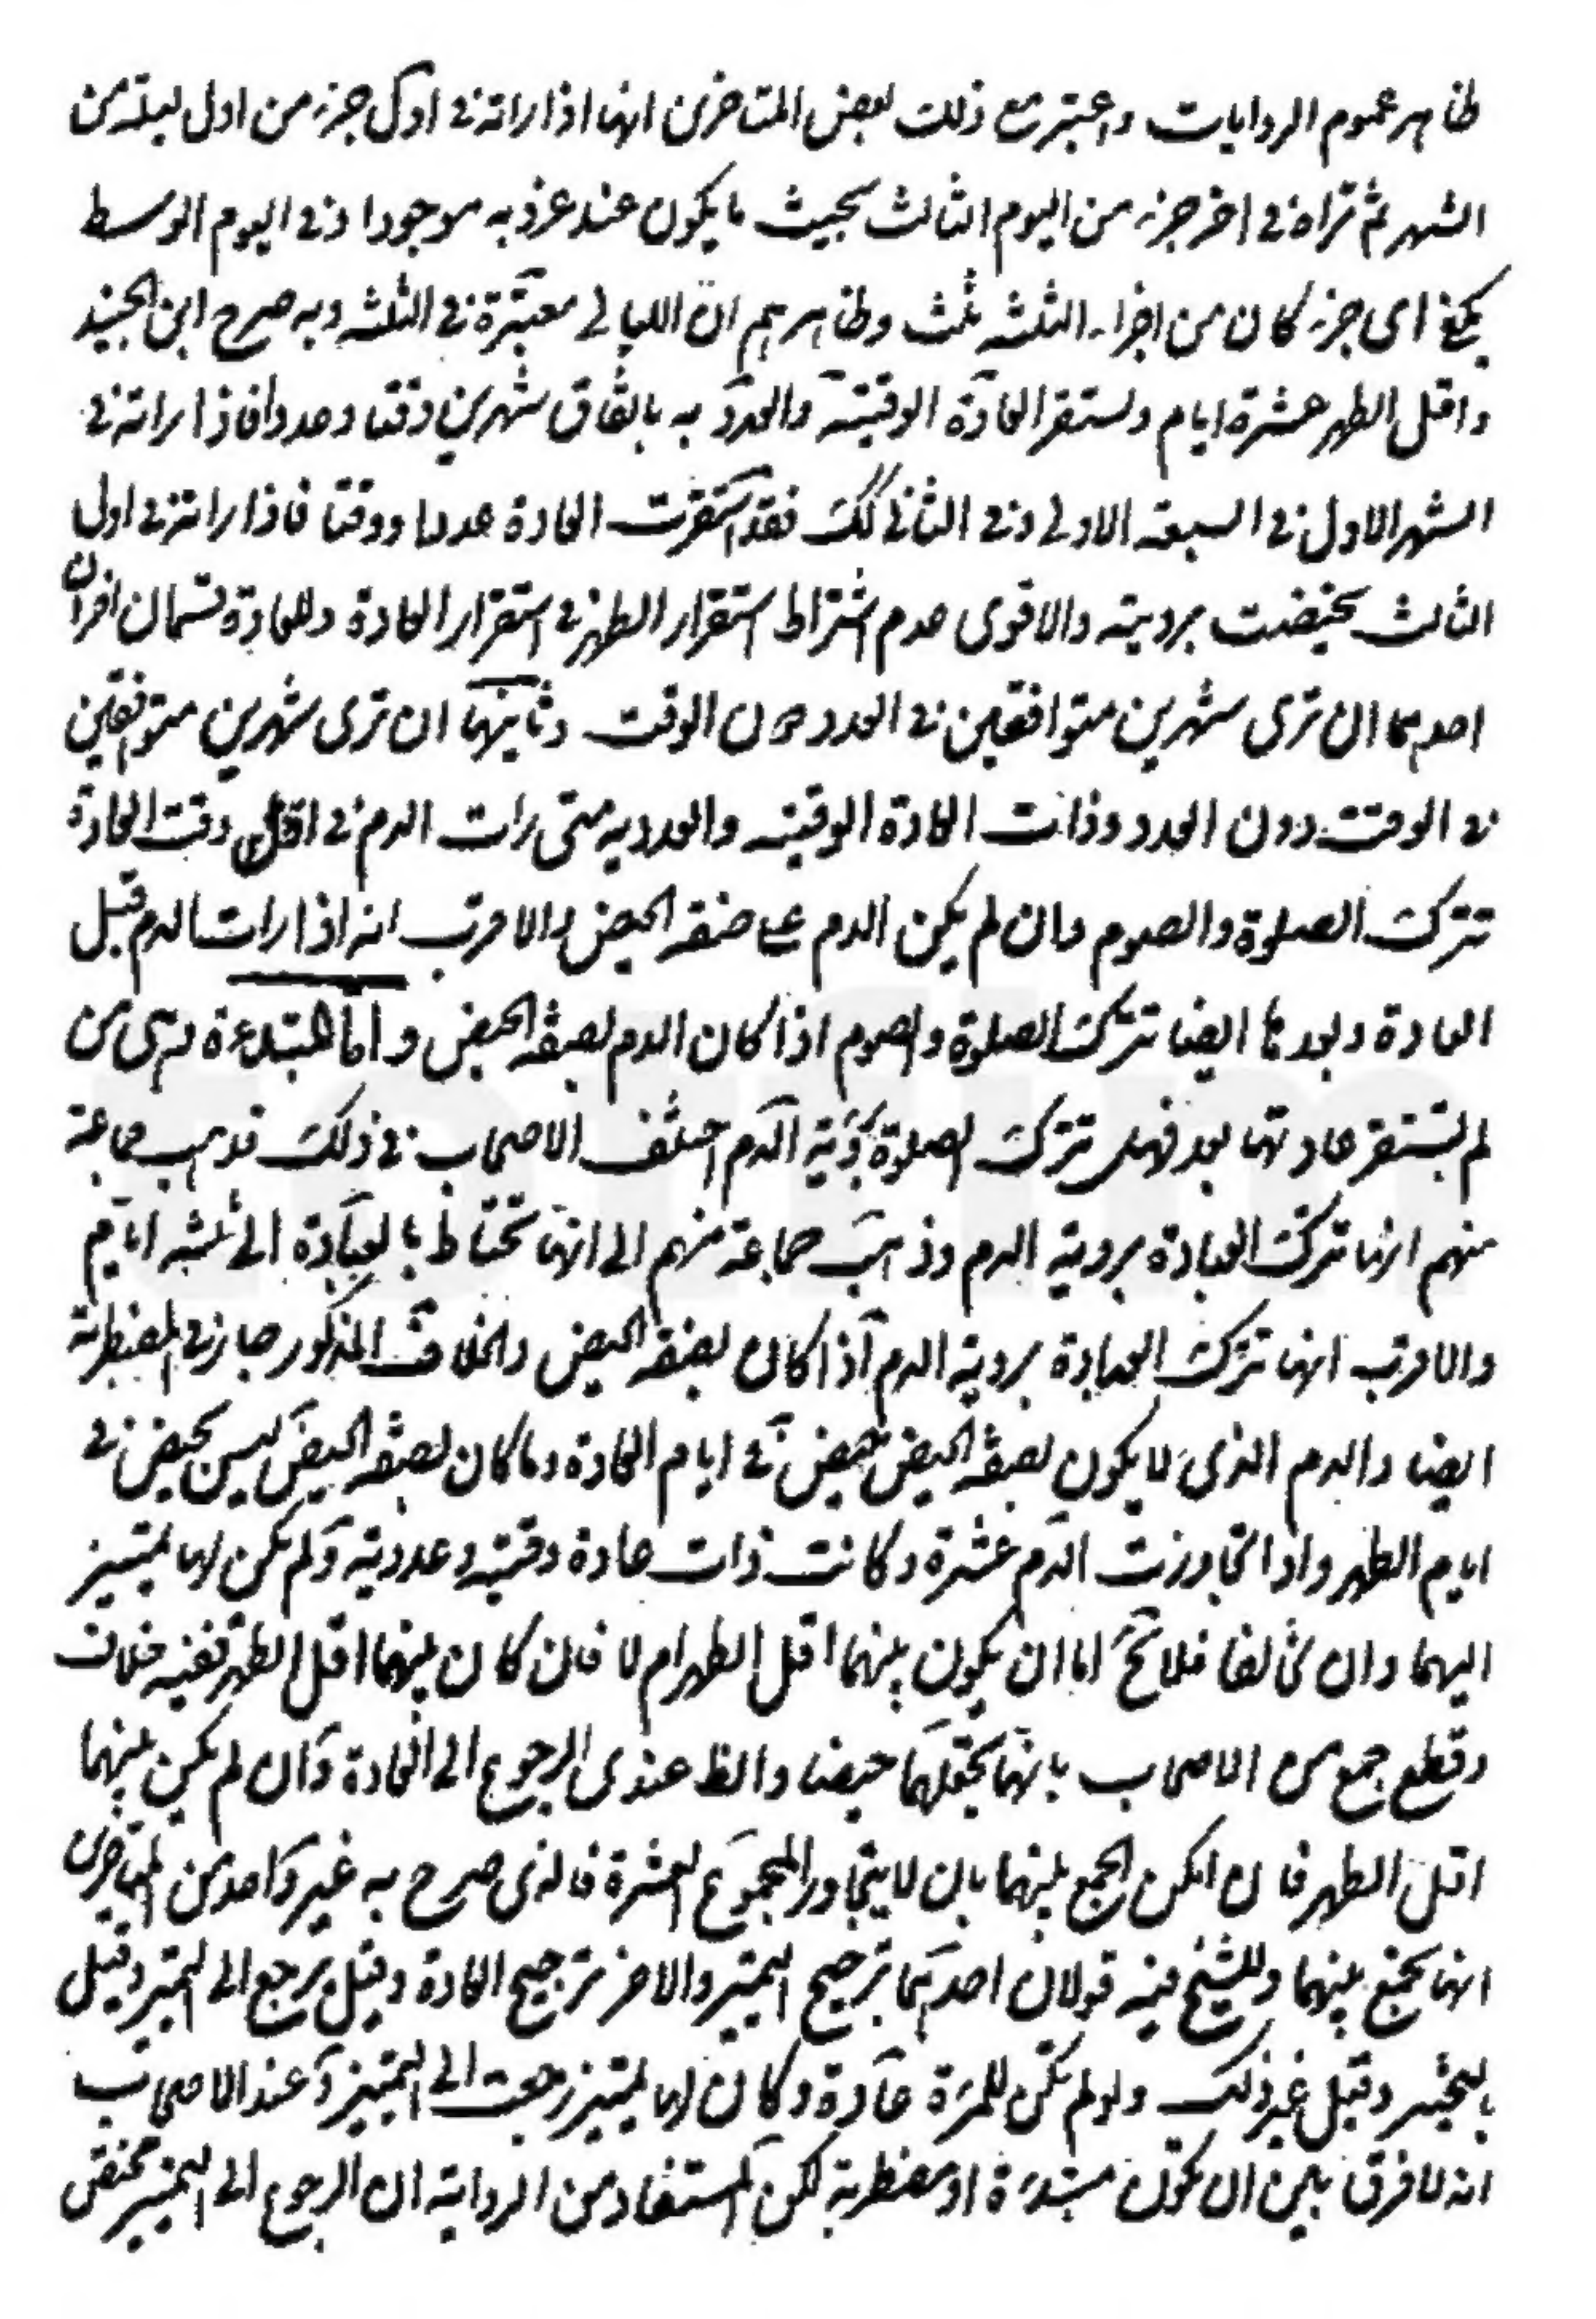 ظاهر عموم الروايات واعتبر مع ذلك بعض المتاخرين انها اذا راته في اول جزء من اول ليلة من
الشهر ثم تراه في اخر جزء من اليوم الثالث بحيث ما يكون عند غروبه موجودا وفي اليوم الوسط
يكفي اى جزء كان من اجزاء الثلثه ثلث وظاهرهم ان الليالي معتبرة في الثلثه وبه صرح ابن الجنيد
واقل الطهر عشرة ايام وتستقر العادة الوقتيه والعددية باتفاق شهرين وقتا وعددا فاذا راته في
الشهر الاول في السبعه الاولى وفي الثاني كك فقد استقرت العادة عددا ووقتا فاذا راته في اول
الثالث تحيضت برويته والاقوى عدم اشتراط استقرار الطهر في استقرار العادة وللعادة قسمان اخران
احدهما ان ترى شهرين متوافقين في العدد دون الوقت وثانيهما ان ترى شهرين متوافقين
في الوقت دون العدد وذات العادة الوقتيه والعدديه متى رات الدم في وقت العادة
تترك الصلوة والصوم وان لم يكن الدم على صفة الحيض والاقرب انه اذا رات الدم قبل
العادة وبعدها ايضا تترك الصلوة والصوم اذا كان الدم بصفة الحيض واما المبتدءة وهى من
لم تستقر عادتها بعد فهل تترك الصلوة برؤية الدم اختلف الاصحاب في ذلك فذهب جماعة
منهم انها تترك العبادة بروية الدم وذهب جماعة منهم الى انها تحتاط بالعبادة الى ثلثه ايام
والاقرب انها تترك العبادة بروية الدم اذا كان بصفة الحيض والخلاف المذكور جار في المضطربة
ايضا والدم الذى لا يكون بصفة الحيض حيض في ايام العادة وما كان بصفة الحيض ليس بحيض في
ايام الطهر واذا تجاوزت الدم عشرة وكانت ذات عادة وقتيه وعددية ولم يكن لها تمييز
اليهما وان تخالفا فلا يخ اما ان يكون بينهما اقل الطهر ام لا فان كان بينهما اقل الطهر ففيه خلاف
وقطع جمع من الاصحاب بانها تجعلهما حيضا والظ عندى الرجوع الى العادة وان لم يكن بينهما
اقل الطهر فان امكن الجمع بينهما بان لا يتجاوز المجموع العشرة فالذى صرح به غير واحد من المتاخرين
انها تجمع بينهما وللشيخ فيه قولان احدهما ترجيح التميز والاخر ترجيح العادة وقيل يرجع الى التميز وقيل
بالتخيير وقيل غير ذلك ولو لم تكن للمرءة عادة وكان لها تمييز رجعت الى التمييز وعند الاصحاب
انه لا فرق بين ان تكون مبتدءة او مضطربة لكن المستفاد من الرواية ان الرجوع الى التمييز مختص